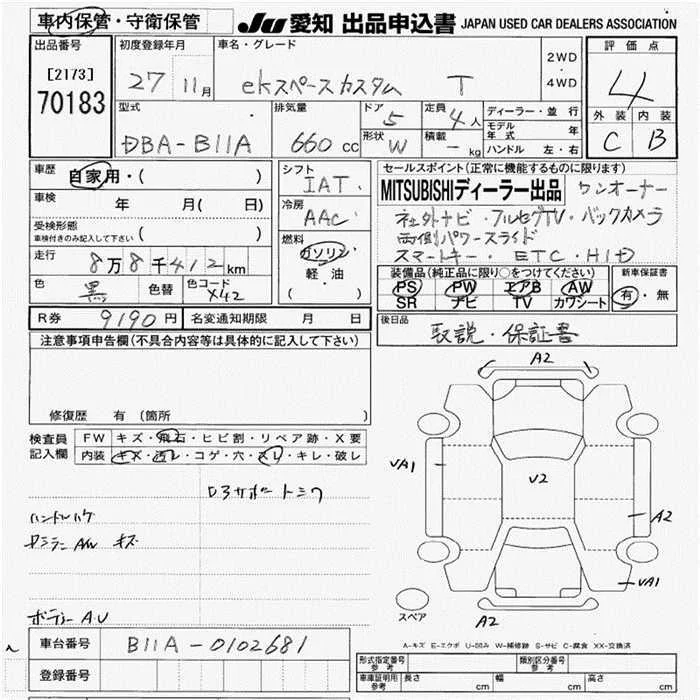 車内保管・守衛保管 JU 愛知 出品申込書 JAPAN USED CAR DEALERS ASSOCIATION
出品番号 [2173] 70183
初度登録年月 27 11月
車名・グレード ekスペースカスタム T
2WD ・ 4WD
評価点 4
外装 C 内装 B
型式 DBA-B11A
排気量 660 cc
ドア 5 定員 4人
形状 W 積載 - kg
ディーラー・並行
モデル年式 年
ハンドル 左・右
車歴 自家用・( )
車検 年 月( 日)
受検形態 車検付きのみ記入して下さい ( )
走行 8万8千412km
色 黒 色替 色コード X42
シフト IAT
冷房 AAC
燃料 ガソリン 軽油 ( )
セールスポイント(正常に機能するものに限ります)
MITSUBISHIディーラー出品 ワンオーナー
社外ナビ・フルセグTV・バックカメラ
両側パワースライド
スマートキー・ETC・HID
装備品(純正品に限り○をつけてください)
PS PW エアB AW
SR ナビ TV カワシート
新車保証書 有・無
R券 9190円 名変通知期限 月 日
後日品 取説・保証書
注意事項申告欄(不具合内容等は具体的に記入して下さい)
修復歴 有(箇所
検査員記入欄
FW キズ・飛石・ヒビ割・リペア跡・X要
内装 キズ・汚レ・コゲ・穴・スレ・キレ・破レ
ハンドルハゲ
キズ
ボディー A.U
A2
VA1
V2
A2
VA1
A2
スペア
A-キズ E-エクボ U-凹み W-補修跡 S-サビ C-腐食 XX-交換済
車台番号 B11A-0102681
登録番号
形式指定番号 参考 類別区分番号 参考
車庫証明用 参考 長さ cm 幅 cm 高さ cm